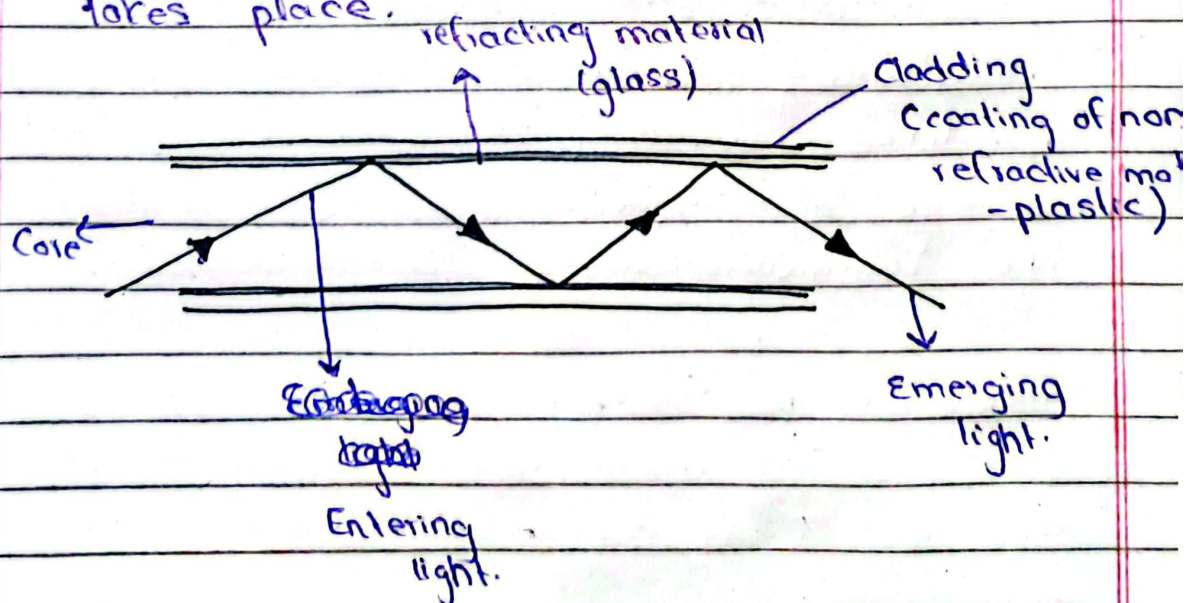 takes place.
refracting material
(glass)
Cladding
(coating of non
refractive mat
-plastic)
Core
Emerging
light.
Entering
light.